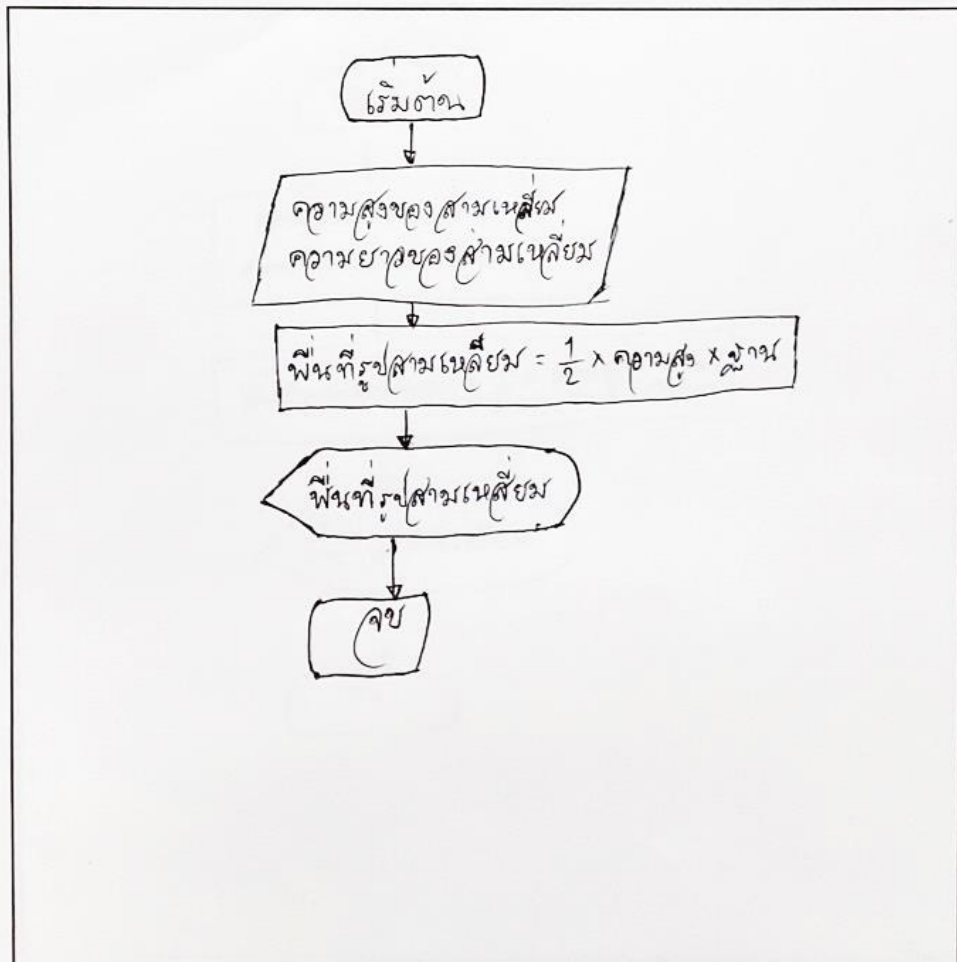 เริ่มต้น
ความสูงของสามเหลี่ยม
ความยาวของสามเหลี่ยม
พื้นที่รูปสามเหลี่ยม = 1/2 × ความสูง × ฐาน
พื้นที่รูปสามเหลี่ยม
จบ